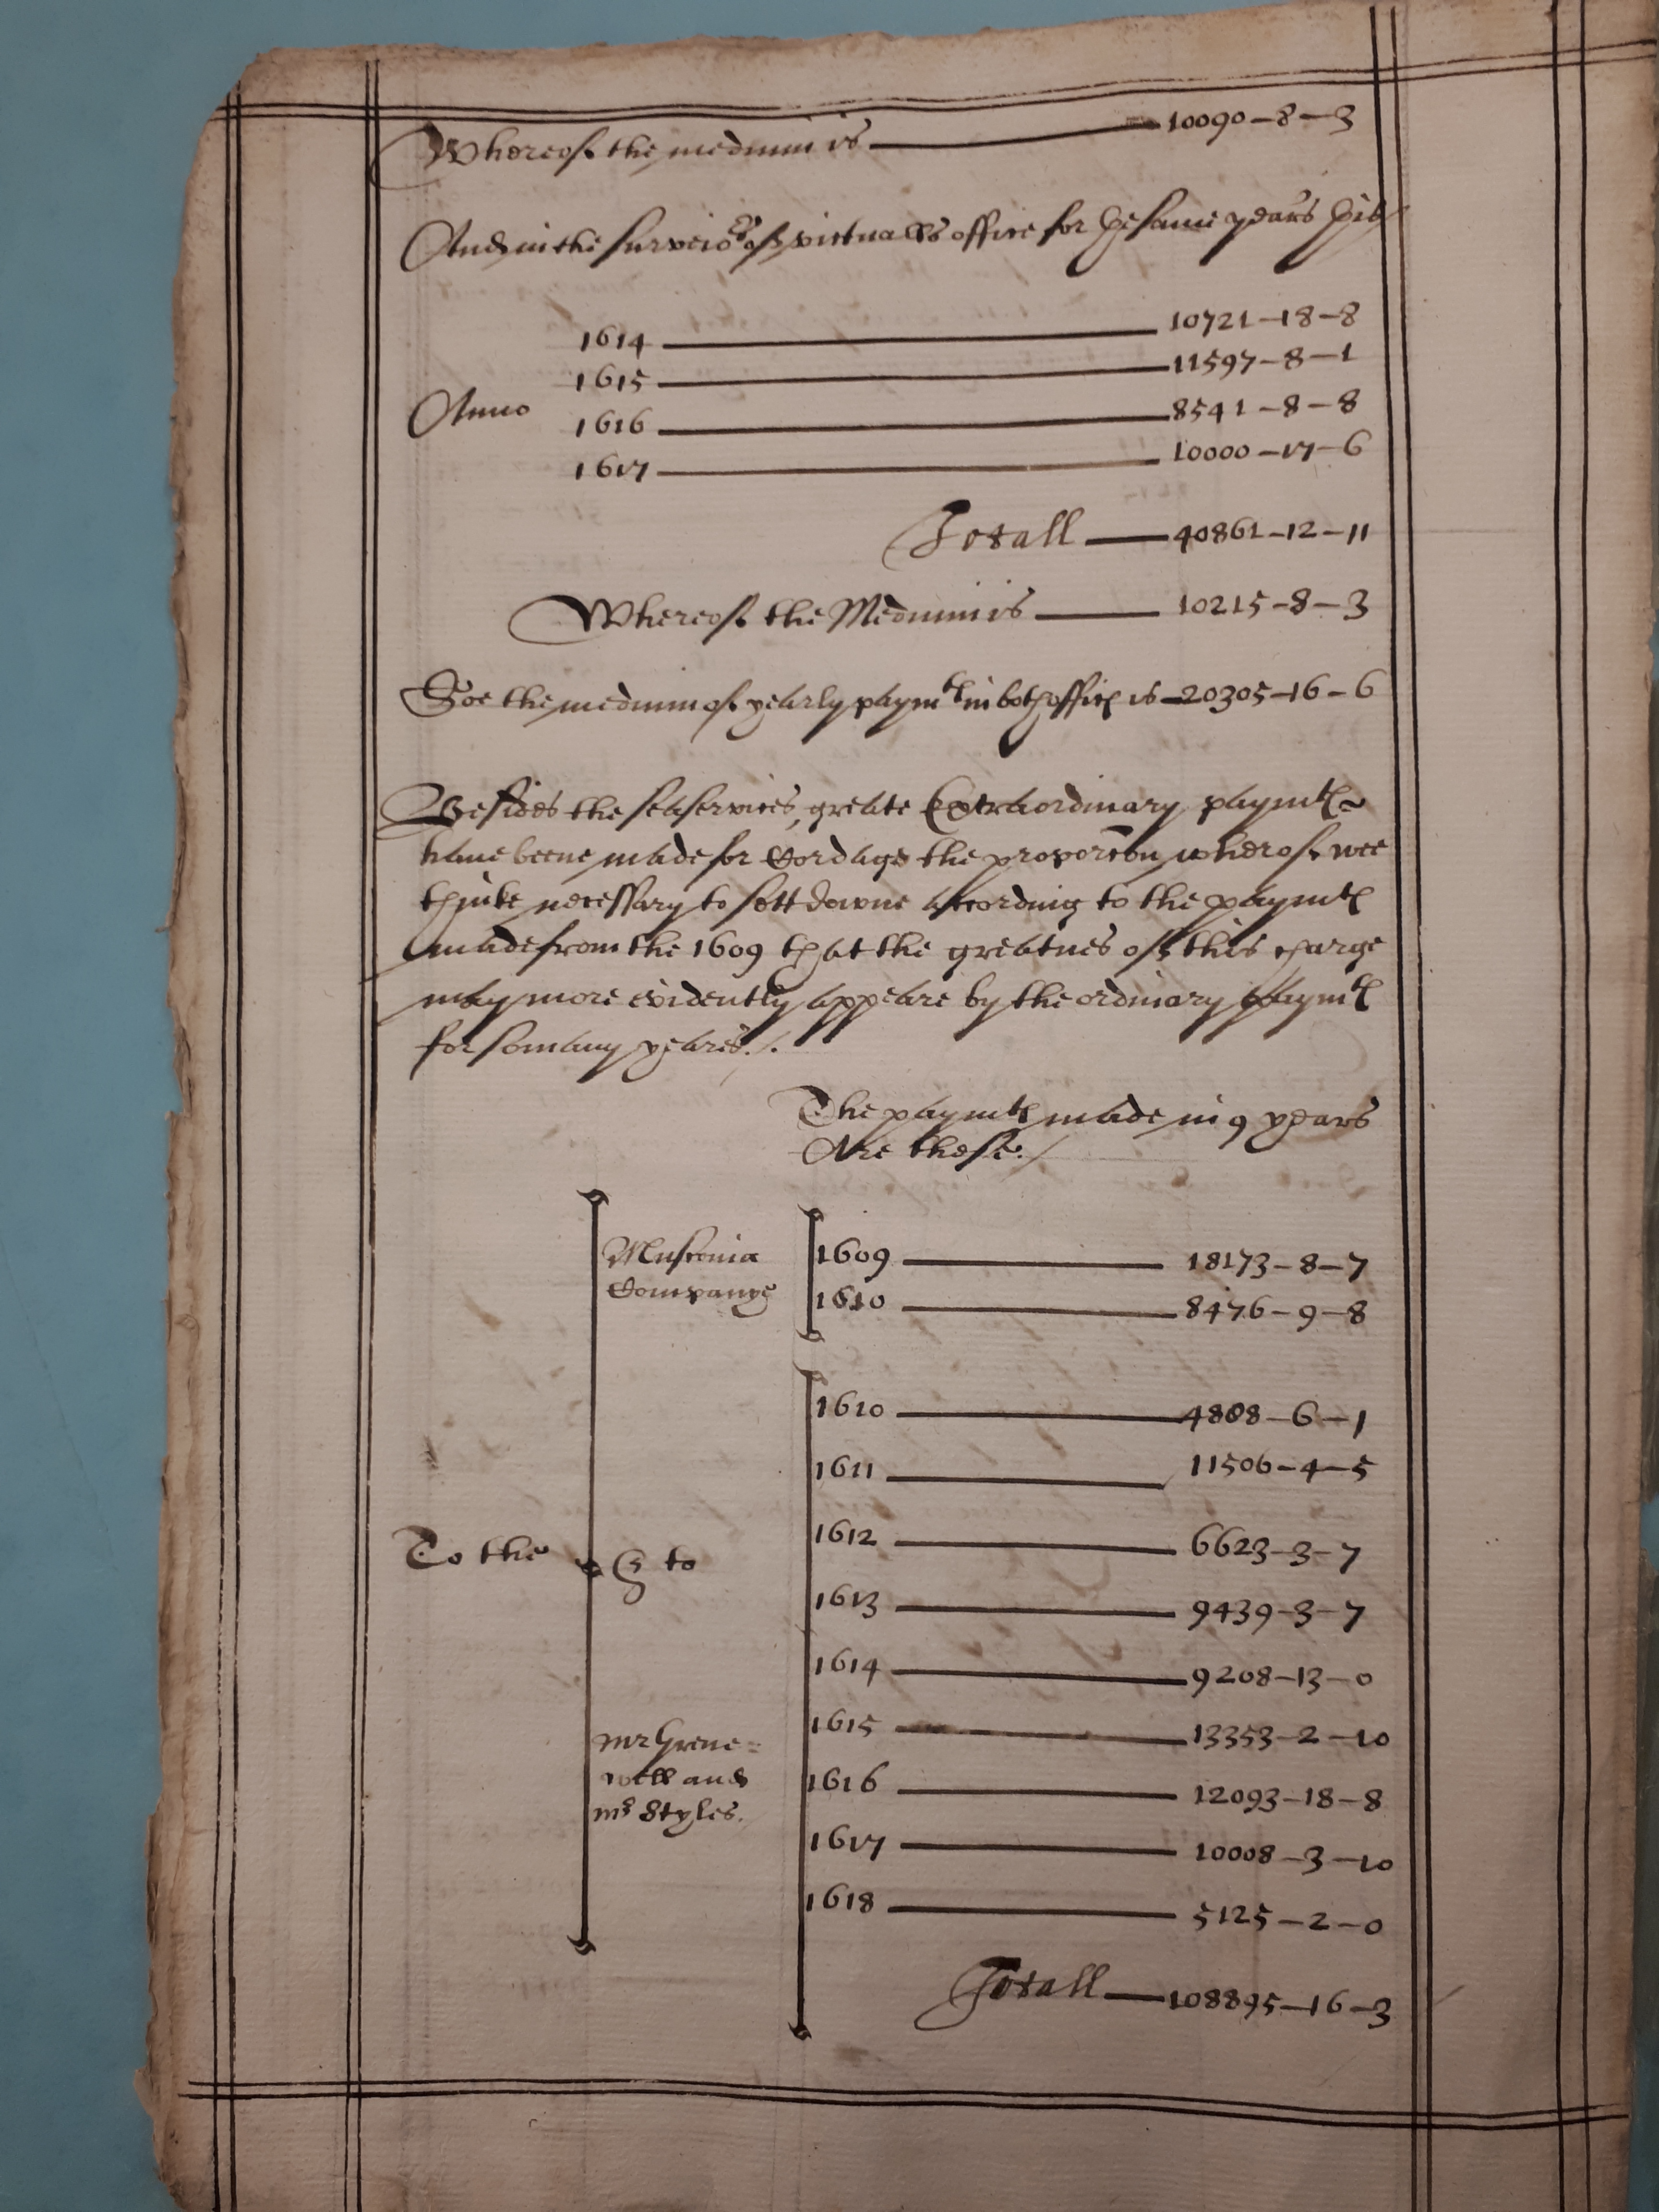 Whereof the medium is — 10090-8-3
And in the surveiors of victualls office for the same years
1614 — 10721-18-8
1615 — 11597-8-1
Anno
1616 — 8541-8-8
1617 — 10000-17-6
Totall — 40861-12-11
Whereof the Medium is — 10215-8-3
Soe the medium of yearly paymts in both offices is — 20305-16-6
Besides the sea services, greate Extraordinary paymts
have beene made for Cordage the proporcon wherof wee
thinke necessary to sett downe according to the paymts
made from the 1609 that the greatnes of this charge
may more evidently appeare by the ordinary paymts
for somany yeares./.
The paymts made in 9 years
Are these./
Muscovia
Companye
1609 — 18173-8-7
1610 — 8476-9-8
1610 — 4888-6-1
1611 — 11506-4-5
1612 — 6623-3-7
To the
& to
1613 — 9439-3-7
1614 — 9208-13-0
1615 — 13353-2-10
mr Grene=
well and
mr Styles.
1616 — 12093-18-8
1617 — 10008-3-10
1618 — 5125-2-0
Totall — 108895-16-3